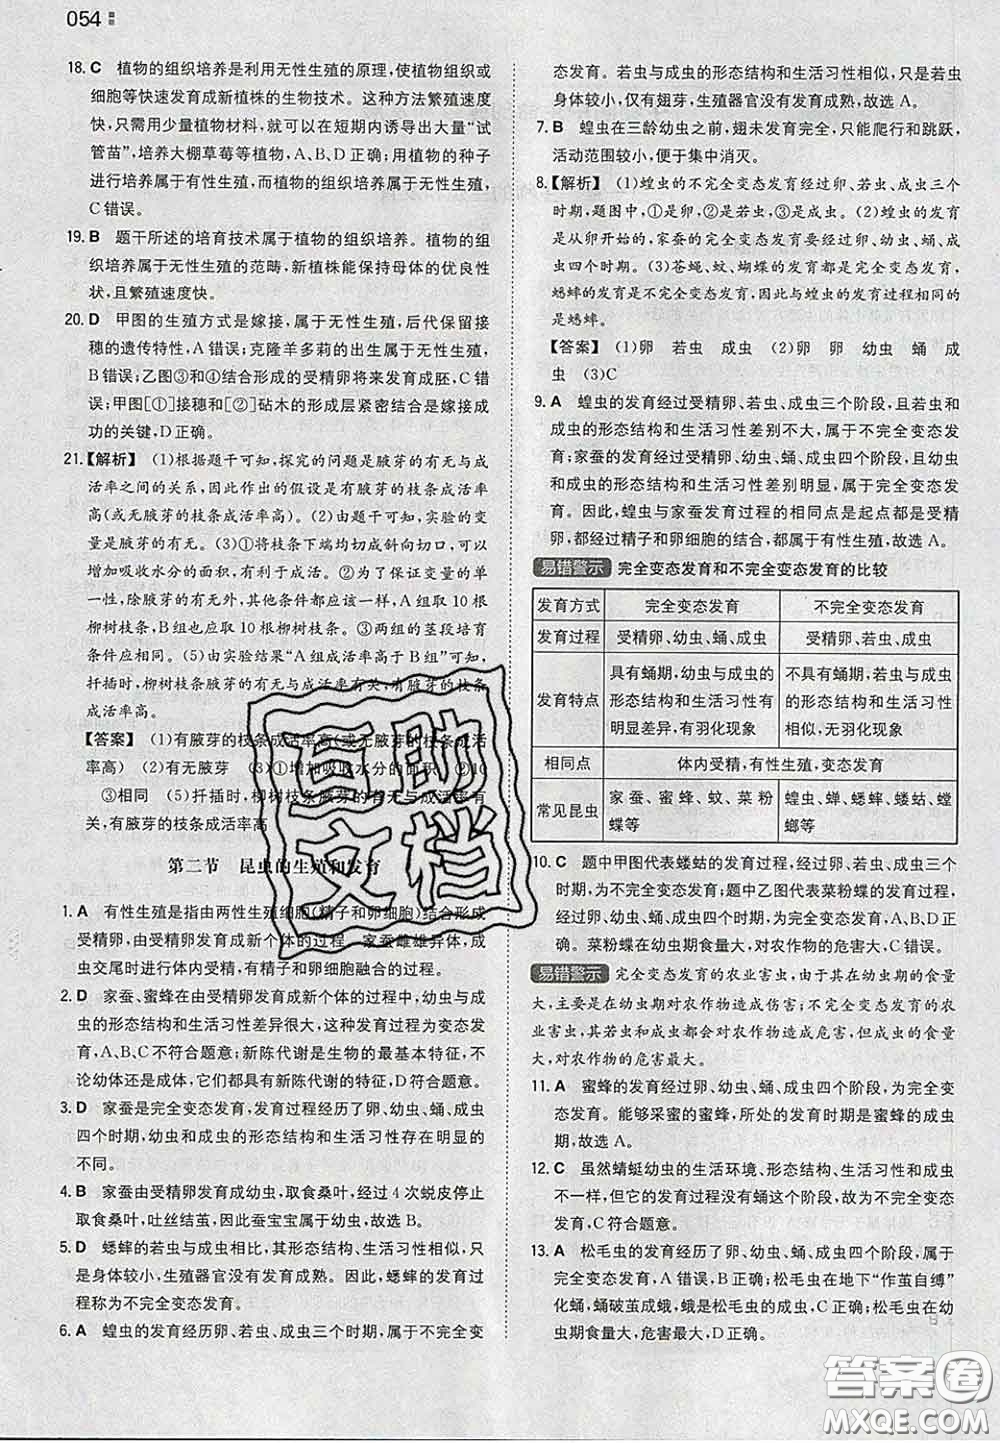 054
18. C 植物的组织培养是利用无性生殖的原理，使植物组织或
细胞等快速发育成新植株的生物技术。这种方法繁殖速度
快，只需用少量植物材料，就可以在短期内诱导出大量“试
管苗”，培养大棚草莓等植物，A、B、D 正确；用植物的种子
进行培养属于有性生殖，而植物的组织培养属于无性生殖，
C 错误。
19. B 题干所述的培育技术属于植物的组织培养。植物的组
织培养属于无性生殖的范畴，新植株能保持母体的优良性
状，且繁殖速度快。
20. D 甲图的生殖方式是嫁接，属于无性生殖，后代保留接
穗的遗传特性，A 错误；克隆羊多莉的出生属于无性生殖，
B 错误；乙图③和④结合形成的受精卵将来发育成胚，C 错
误；甲图［①］接穗和［②］砧木的形成层紧密结合是嫁接成
功的关键，D 正确。
21.【解析】 (1)根据题干可知，探究的问题是腋芽的有无与成
活率之间的关系，因此作出的假设是有腋芽的枝条成活率
高(或无腋芽的枝条成活率高)。(2)由题干可知，实验的变
量是腋芽的有无。(3)①将枝条下端均切成斜向切口，可以
增加吸收水分的面积，有利于成活。②为了保证变量的唯
一，除腋芽的有无外，其余条件都应该一样，A 组取 10 根
柳树枝条，B 组也应取 10 根柳树枝条。③两组的茎段培育
条件应相同。(5)由实验结论“A 组成活率高于 B 组”可知，
扦插时，柳树枝条腋芽的有无与成活率有关，有腋芽的枝条
成活率高。
【答案】 (1)有腋芽的枝条成活率高(或无腋芽的枝条成活
率高) (2)有无腋芽 (3)①增加吸收水分的面积 ②10
③相同 (5)扦插时，柳树枝条腋芽的有无与成活率有
关，有腋芽的枝条成活率高
第二节 昆虫的生殖和发育
1. A 有性生殖是指由两性生殖细胞(精子和卵细胞)结合形成
受精卵，由受精卵发育成新个体的过程。家蚕雌雄异体，成
虫交尾时进行体内受精，有精子和卵细胞融合的过程。
2. D 家蚕、蜜蜂在由受精卵发育成新个体的过程中，幼虫与成
虫的形态结构和生活习性差异很大，这种发育过程为变态发
育，A、B、C 不符合题意；新陈代谢是生物的最基本特征，不
论幼体还是成体，它们都具有新陈代谢的特征，D 符合题意。
3. D 家蚕是完全变态发育，发育过程经历了卵、幼虫、蛹、成虫
四个时期，幼虫和成虫的形态结构和生活习性存在明显的
不同。
4. B 家蚕由受精卵发育成幼虫，取食桑叶，经过 4 次蜕皮停止
取食桑叶，吐丝结茧，因此蚕宝宝属于幼虫，故选 B。
5. D 蟋蟀的若虫与成虫相比，其形态结构、生活习性相似，只是
身体较小，生殖器官没有发育成熟。因此，蟋蟀的发育过
程称为不完全变态发育。
6. A 蝗虫的发育经历卵、若虫、成虫三个时期，属于不完全变
态发育。若虫与成虫的形态结构和生活习性相似，只是若虫
身体较小，仅有翅芽，生殖器官没有发育成熟，故选 A。
7. B 蝗虫在三龄幼虫之前，翅未发育完全，只能爬行和跳跃，
活动范围较小，便于集中消灭。
8.【解析】 (1)蝗虫的不完全变态发育经过卵、若虫、成虫三个
时期，题图中，①是卵，②是若虫，③是成虫。(2)蝗虫的发育
是从卵开始的，家蚕的完全变态发育要经过卵、幼虫、蛹、成
虫四个时期。(3)苍蝇、蚊、蝴蝶的发育都是完全变态发育，
蟋蟀的发育是不完全变态发育，因此与蝗虫的发育过程相同的
是蟋蟀。
【答案】 (1)卵 若虫 成虫 (2)卵 卵 幼虫 蛹 成
虫 (3)C
9. A 蝗虫的发育经过受精卵、若虫、成虫三个阶段，且若虫和
成虫的形态结构和生活习性差别不大，属于不完全变态发
育；家蚕的发育经过受精卵、幼虫、蛹、成虫四个阶段，且幼虫
和成虫的形态结构和生活习性差别明显，属于完全变态发
育。因此，蝗虫与家蚕发育过程的相同点是起点都是受精
卵，都是精子和卵细胞的结合，都属于有性生殖，故选 A。
易错警示 完全变态发育和不完全变态发育的比较
发育方式 完全变态发育 不完全变态发育
发育过程 受精卵、幼虫、蛹、成虫 受精卵、若虫、成虫
发育特点 具有蛹期，幼虫与成虫的形态结构和生活习性有明显差异，有羽化现象 不具有蛹期，若虫与成虫的形态结构和生活习性相似，无羽化现象
相同点 体内受精，有性生殖，变态发育
常见昆虫 家蚕、蜜蜂、蚊、菜粉蝶等 蝗虫、蝉、蟋蟀、蝼蛄、螳螂等
10. C 题中甲图代表蝼蛄的发育过程，经过卵、若虫、成虫三个
时期，为不完全变态发育；题中乙图代表菜粉蝶的发育过程，
经过卵、幼虫、蛹、成虫四个时期，为完全变态发育，A、B、D
正确。菜粉蝶在幼虫期食量大，对农作物的危害大，C 错误。
易错警示 完全变态发育的农业害虫，由于其在幼虫期的食量
大，主要是在幼虫期对农作物造成伤害；不完全变态发育的农
业害虫，其若虫和成虫都会对农作物造成危害，但成虫的食量
大，对农作物的危害最大。
11. A 蜜蜂的发育经过卵、幼虫、蛹、成虫四个阶段，为完全变
态发育。能够采蜜的蜜蜂，所处的发育时期是蜜蜂的成虫
期，故选 A。
12. C 虽然蜻蜓幼虫的生活环境、形态结构、生活习性和成虫
不一样，但它的发育过程没有蛹这个阶段，故为不完全变态
发育，C 符合题意。
13. A 松毛虫的发育经历了卵、幼虫、蛹、成虫四个阶段，属于
完全变态发育，A 错误，B 正确；松毛虫在地下“作茧自缚”
化蛹，蛹破茧成蛾，蛾是松毛虫的成虫，C 正确；松毛虫在幼
虫期食量最大，D 正确。
互助
文档
答案圈
MXQE.COM